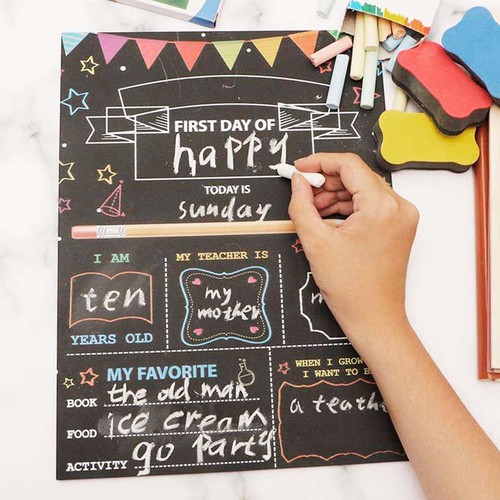 FIRST DAY OF
happy
TODAY IS
sunday
I AM
ten
YEARS OLD
MY TEACHER IS
my
mother
MY FAVORITE
BOOK the old man
FOOD ice cream
ACTIVITY go party
WHEN I GROW
I WANT TO B
a teach